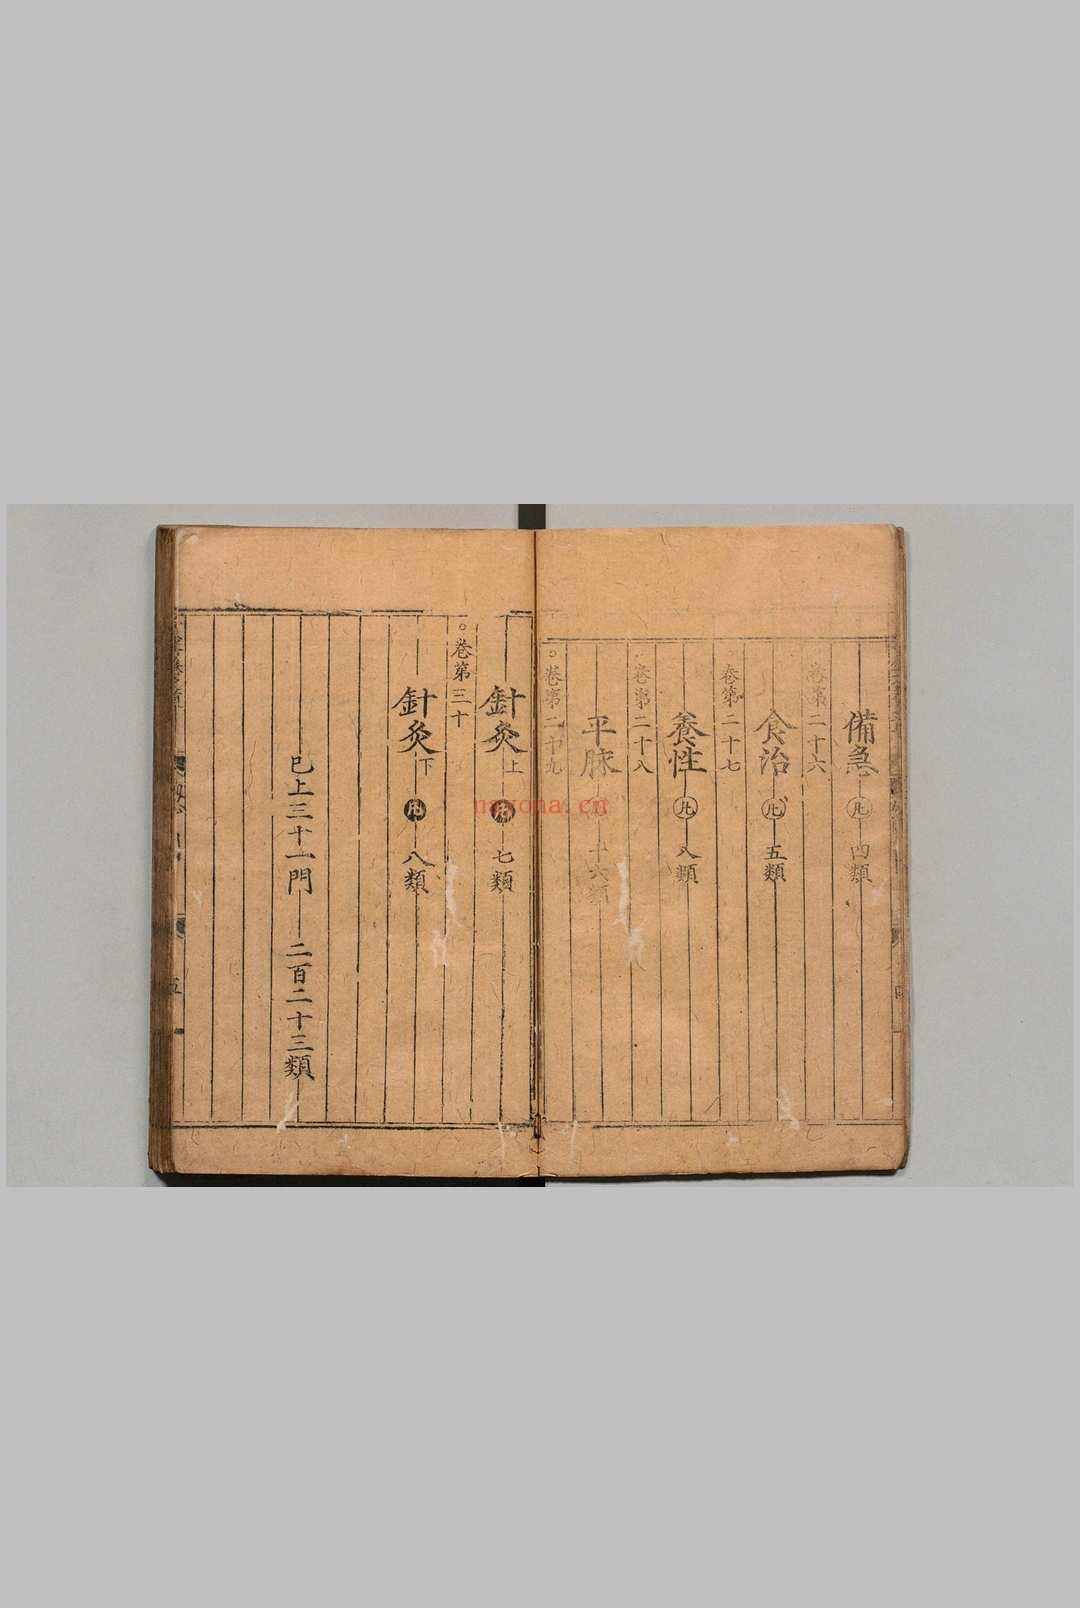 備急 凡 四類
卷第二十六
食治 凡 五類
卷第二十七
養性 凡 八類
卷第二十八
平脉 十六類
。卷第二十九
針灸上 凡 七類
。卷第三十
針灸下 凡 八類
巳上三十一門 二百二十三類
nayona.cn